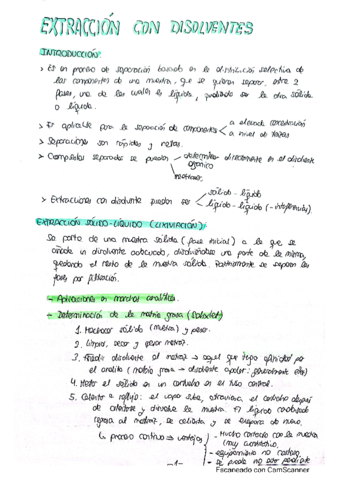 EXTRACCIÓN CON DISOLVENTES
INTRODUCCIÓN:
> Es un proceso de separación basado en la distribución selectiva de
los componentes de una muestra, que se quieran separar, entre 2
fases, una de las cuales es líquida, pudiendo ser la otra sólida
o líquida.
> Es aplicable para la separación de componentes a elevada concentración
a nivel de trazas
> Separaciones son rápidas y netas.
> Complejos separados se pueden determinar directamente en el disolvente
orgánico
> Extracciones con disolvente pueden ser sólido-líquido
líquido-líquido (- importante)
EXTRACCIÓN SÓLIDO-LÍQUIDO (LIXIVIACIÓN):
Se parte de una muestra sólida (fase inicial) a la que se
añade un disolvente adecuado, disolviéndose una parte de la misma,
quedando el resto de la muestra sólida. Posteriormente se separan las
fases por filtración.
- Aplicaciones en marchas analíticas.
- Determinación de la materia grasa (Soxhlet)
1. Machacar sólido (muestra) y pesar.
2. Limpiar, secar y pesar matraz.
3. Añadir disolvente al matraz → aquel que tenga afinidad por
el analito (materia grasa → disolvente apolar: generalmente éter)
4. Meter el sólido en un cartucho en el tubo central.
5. Calentar a reflujo: el vapor sube, atraviesa el cartucho después
de calentarse y disuelve la muestra. El líquido condensado
regresa al matraz, se calienta y se evapora de nuevo.
↳ proceso continuo → ventajas - Mucho contacto con la muestra
(muy cuantitativo).
- equipamiento no costoso
- se puede no ser pendiente
-1-
Escaneado con CamScanner